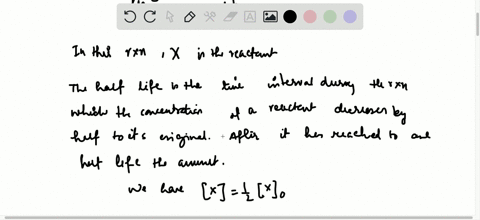 In this rxn, X is the reactant
The half life is the time interval during the rxn
which the concentration of a reactant decreases by
half to its original. After it has reached to one
half life the amount.
We have [X] = 1/2 [X]₀